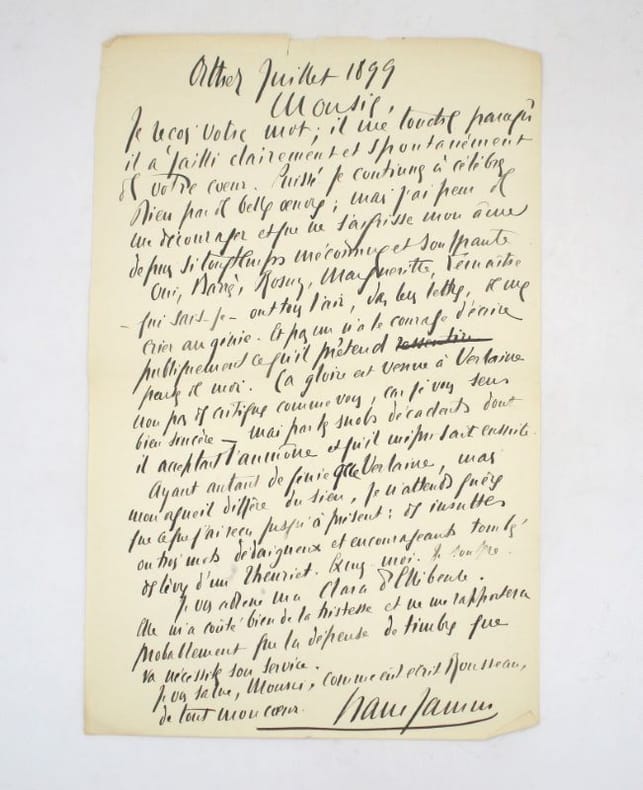 Orthez Juillet 1899
Monsieur,
Je reçois votre mot ; il me touche parce qu'
il a jailli clairement et spontanément
de votre coeur. Puissé-je continuer à célébrer
bien par de belles oeuvres ; mais j'ai peur de
me décourager et que ne s'aigrisse mon âme
depuis si longtemps méconnue et souffrante
Oui, Barrès, Rosny, Margueritte, Lemaître
- qui sais-je - ont tous l'air, dans leurs lettres, de me
crier au génie. Et pas un n'a le courage d'écrire
publiquement ce qu'il prétend ressentir
penser de moi. La gloire est venue à Verlaine
non pas de critiques comme vous, car je vous sens
bien sincère - mais par les snobs décadents dont
il acceptait l'aumône et qu'il méprisait ensuite.
Ayant autant de génie que Verlaine, mais
mon orgueil diffère du sien, je n'attends guère
que ce que j'ai reçu jusqu'à présent : des insultes
ou trois mots dédaigneux et encourageants tombés
des lèvres d'un Theuriet. Excusez-moi. Je souffre.
Je vous adresse ma Clara d'Ellébeuse.
Elle m'a coûté bien de la tristesse et ne me rapportera
probablement que la dépense de timbres que
va nécessiter son service.
Je vous salue, Monsieur, comme écrit Rousseau,
de tout mon coeur.
Francis Jammes